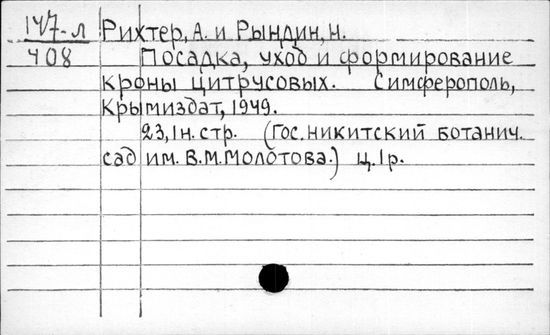 147-л Рихтер, А. и Рындин, Н.
408 Посадка, уход и формирование
кроны цитрусовых. Симферополь,
Крымиздат, 1949.
23,1н.стр. (Гос. Никитский ботанич.
сад им. В.М.Молотова.) ц.1р.